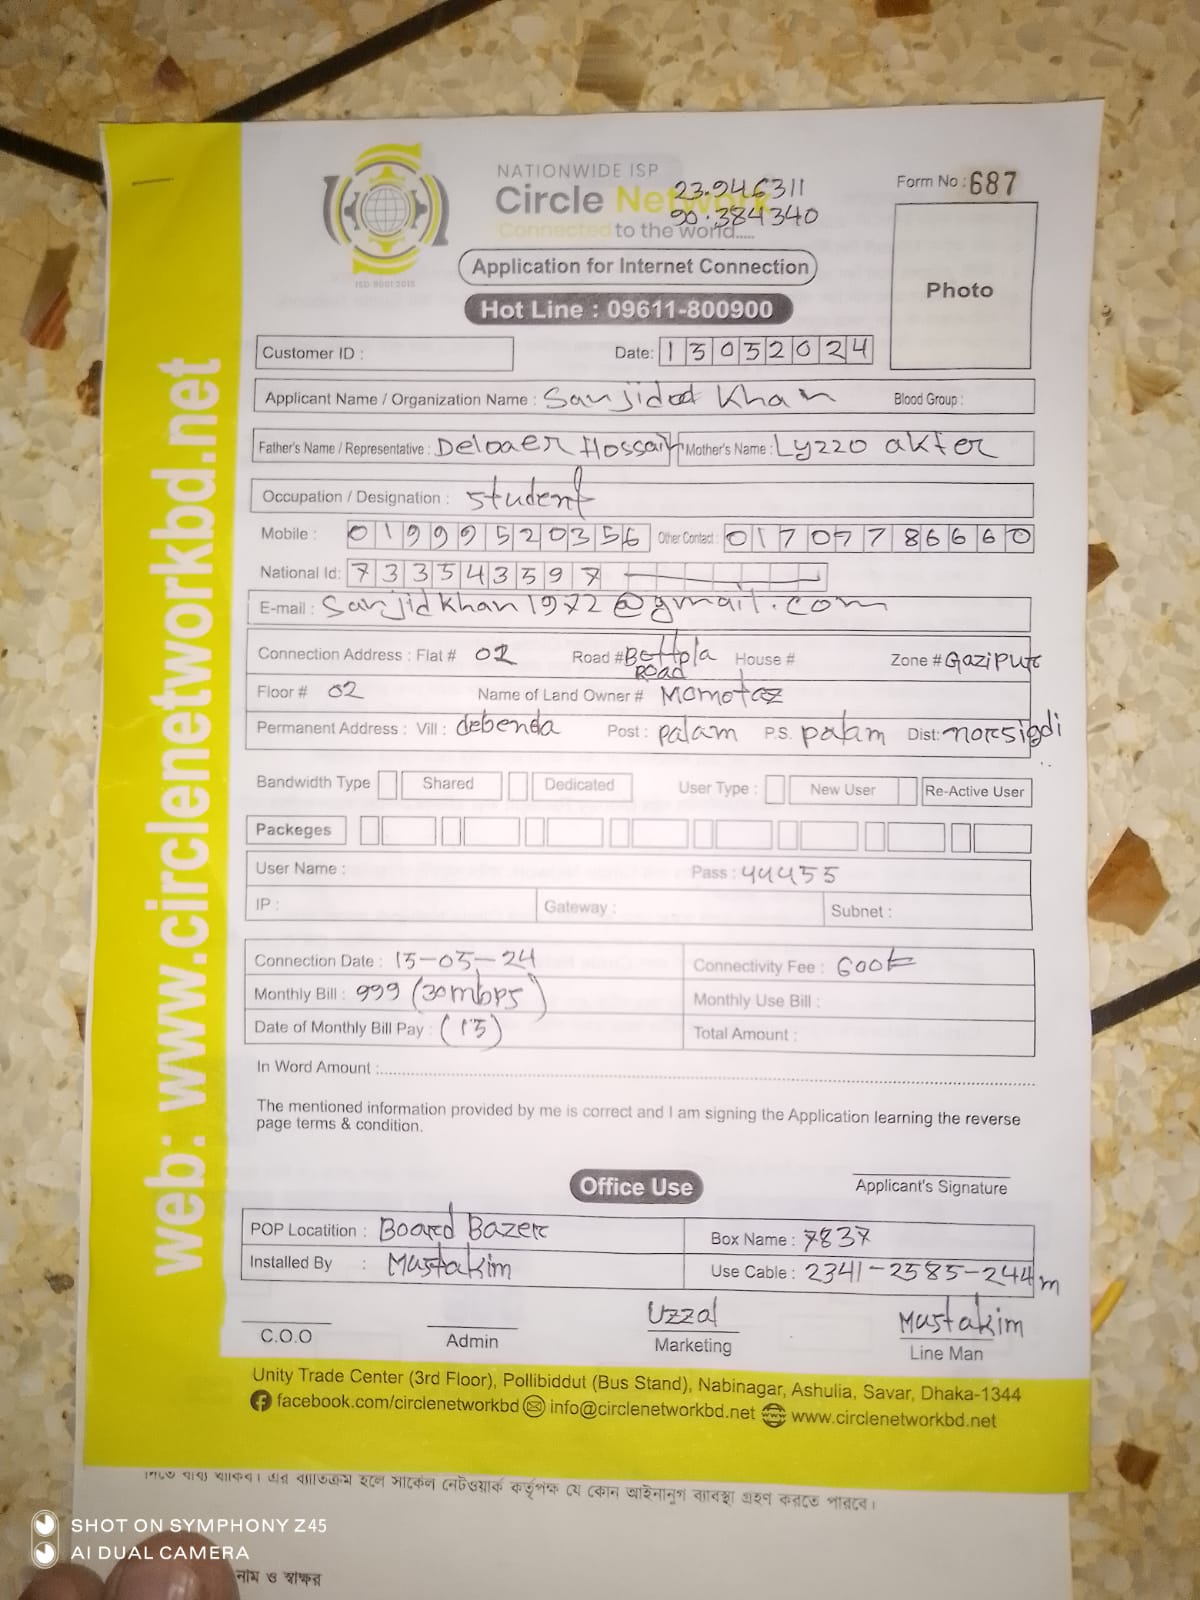 NATIONWIDE ISP
Circle Network
23.946311
90.384340
Connected to the world.....
ISO 9001:2015
Form No : 687
Photo
Application for Internet Connection
Hot Line : 09611-800900
Customer ID :
Date: 15052024
Applicant Name / Organization Name : Sanjidod Khan Blood Group :
Father's Name / Representative : Deloaer Hossain Mother's Name : Lyzzo akter
Occupation / Designation : Student
Mobile : 01999520356 Other Contact : 01707786660
National Id: 733543597
E-mail : Sanjidkhan1972@gmail.com
Connection Address : Flat # 02 Road # Bottola Road House # Zone # Gazipur
Floor # 02 Name of Land Owner # Momotaz
Permanent Address : Vill : debenda Post : palam P.S. palam Dist: norsigdi
Bandwidth Type Shared Dedicated User Type : New User Re-Active User
Packeges
User Name : Pass : 44455
IP : Gateway : Subnet :
Connection Date : 15-05-24 Connectivity Fee : 600৳
Monthly Bill : 999 (30mbps) Monthly Use Bill :
Date of Monthly Bill Pay : (15) Total Amount :
In Word Amount :
The mentioned information provided by me is correct and I am signing the Application learning the reverse
page terms & condition.
Applicant's Signature
Office Use
POP Locatition : Board Bazer Box Name : 7837
Installed By : Mustakim Use Cable : 2341-2585-244m
C.O.O Admin Uzzal Marketing Mustakim Line Man
Unity Trade Center (3rd Floor), Pollibiddut (Bus Stand), Nabinagar, Ashulia, Savar, Dhaka-1344
facebook.com/circlenetworkbd info@circlenetworkbd.net www.circlenetworkbd.net
web: www.circlenetworkbd.net
দিতে বাধ্য থাকিব। এর ব্যতিক্রম হলে সার্কেল নেটওয়ার্ক কর্তৃপক্ষ যে কোন আইনানুগ ব্যবস্থা গ্রহণ করতে পারবে।
নাম ও স্বাক্ষর
SHOT ON SYMPHONY Z45
AI DUAL CAMERA